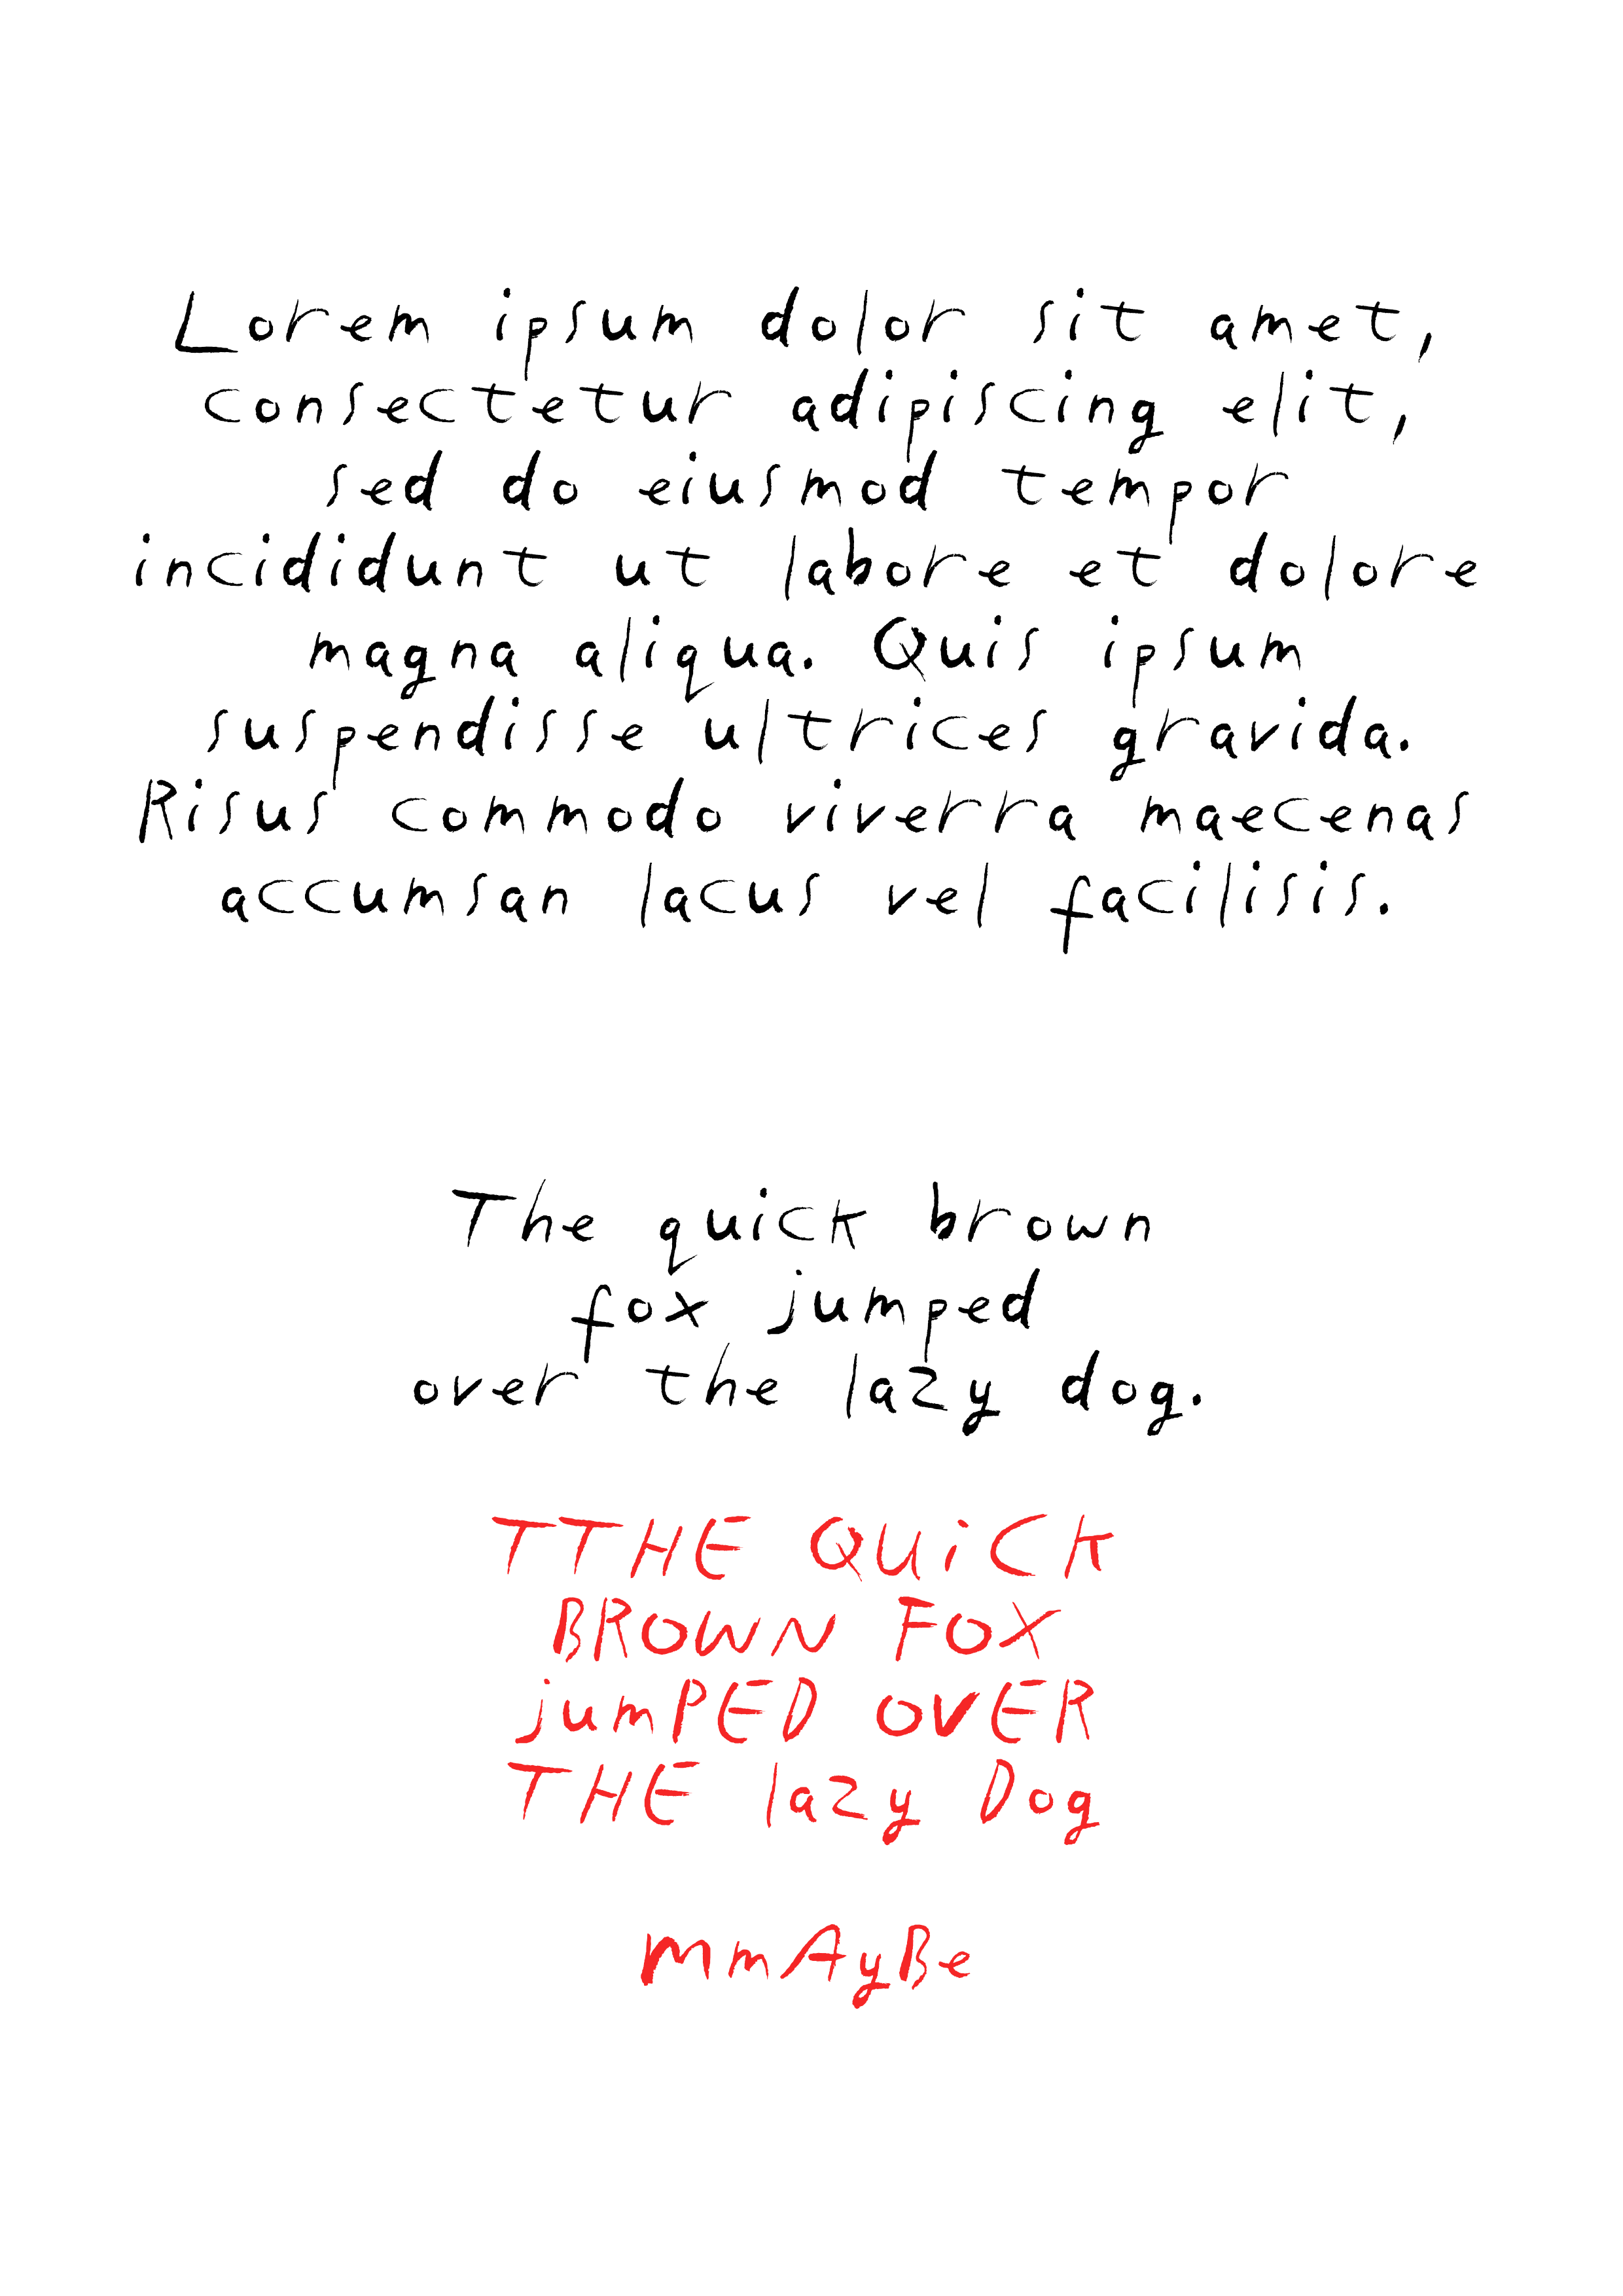 Lorem ipsum dolor sit amet,
consectetur adipiscing elit,
sed do eiusmod tempor
incididunt ut labore et dolore
magna aliqua. Quis ipsum
suspendisse ultrices gravida.
Risus commodo viverra maecenas
accumsan lacus vel facilisis.
The quick brown
fox jumped
over the lazy dog.
TTHE QUiCK
BROWN FOX
jumPED OVER
THE lazy Dog
MmAyBe